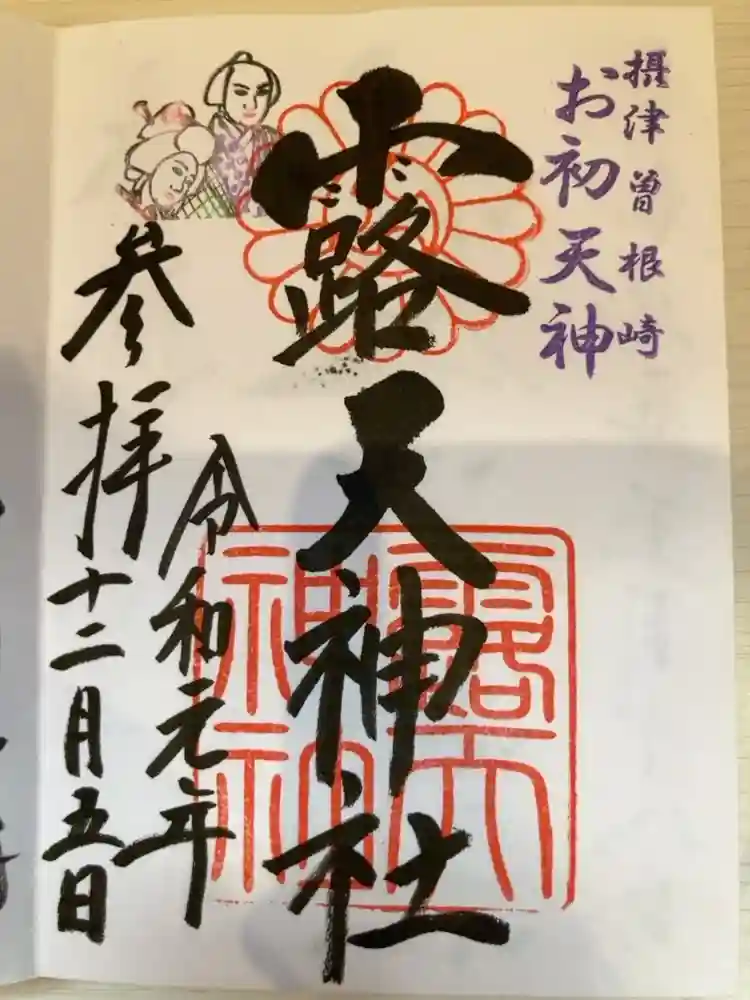 摂津曽根崎
お初天神
露天神社
令和元年
参拝
十二月五日
露天神社